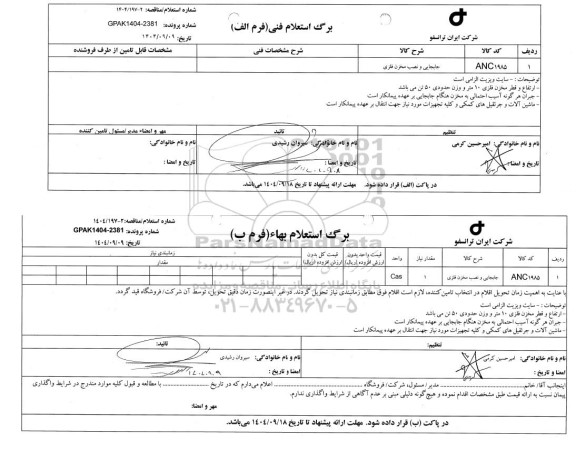 شماره استعلام/مناقصه: ۱۴۰۴/۱۹۷-۲
برگ استعلام فنی(فرم الف)
شماره پرونده: GPAK1404-2381
شرکت ایران ترانسفو
ردیف کد کالا شرح کالا شرح مشخصات فنی مشخصات قابل تامین از طرف فروشنده
۱ ANC۱۹۸۵ جابجایی و نصب مخزن فلزی
توضیحات : - سایت ویزیت الزامی است
- ارتفاع و قطر مخزن فلزی ۱۰ متر و وزن حدودی ۵۰ تن می باشد
- جبران هر گونه آسیب احتمالی به مخزن هنگام جابجایی بر عهده پیمانکار است
- ماشین آلات و جرثقیل های کمکی و کلیه تجهیزات مورد نیاز جهت انتقال بر عهده پیمانکار است
تنظیم تائید مهر و امضاء مدیر/مسئول تامین کننده
نام و نام خانوادگی: امیرحسین کرمی نام و نام خانوادگی: سیروان رشیدی نام و نام خانوادگی:
تاریخ و امضا: تاریخ و امضا: تاریخ و امضا:
در پاکت (الف) قرار داده شود. مهلت ارائه پیشنهاد تا تاریخ ۱۴۰۴/۰۹/۱۸ می‌باشد.
شماره استعلام/مناقصه: ۱۴۰۴/۱۹۷-۲
برگ استعلام بهاء(فرم ب)
شماره پرونده: GPAK1404-2381
شرکت ایران ترانسفو
تاریخ: ۱۴۰۴/۰۹/۰۹
ردیف کد کالا شرح کالا مقدار نیاز واحد قیمت واحد بدون ارزش افزوده (ریال) قیمت کل بدون ارزش افزوده (ریال) زمانبندی نیاز
مقدار
۱ ANC۱۹۸۵ جابجایی و نصب مخزن فلزی ۱ Cas
با عنایت به اهمیت زمان تحویل اقلام در انتخاب تامین‌کننده، لازم است اقلام فوق مطابق زمانبندی نیاز تحویل گردند. در غیر اینصورت زمان دقیق تحویل، توسط آن شرکت/فروشگاه قید گردد.
توضیحات : - سایت ویزیت الزامی است
- ارتفاع و قطر مخزن فلزی ۱۰ متر و وزن حدودی ۵۰ تن می باشد
- جبران هر گونه آسیب احتمالی به مخزن هنگام جابجایی بر عهده پیمانکار است
- ماشین آلات و جرثقیل های کمکی و کلیه تجهیزات مورد نیاز جهت انتقال بر عهده پیمانکار است
ParsNamadData
۰۲۱-۸۸۳۴۹۶۷۰-۵
تنظیم: تائید:
نام و نام خانوادگی: امیرحسین کرمی نام و نام خانوادگی: سیروان رشیدی
امضا و تاریخ: امضا و تاریخ: ۱۴۰۴.۰۹.۰۹
اینجانب آقا/ خانم مدیر/ مسئول، شرکت/ فروشگاه اعلام می‌دارم که در تاریخ با مطالعه و قبول کلیه موارد مندرج در شرایط واگذاری
پیمان نسبت به ارائه قیمت طبق مشخصات اقدام نموده و هیچ‌گونه دلیلی مبنی بر عدم آگاهی از شرایط واگذاری ندارم.
مهر و امضا:
در پاکت (ب) قرار داده شود. مهلت ارائه پیشنهاد تا تاریخ ۱۴۰۴/۰۹/۱۸ می‌باشد.